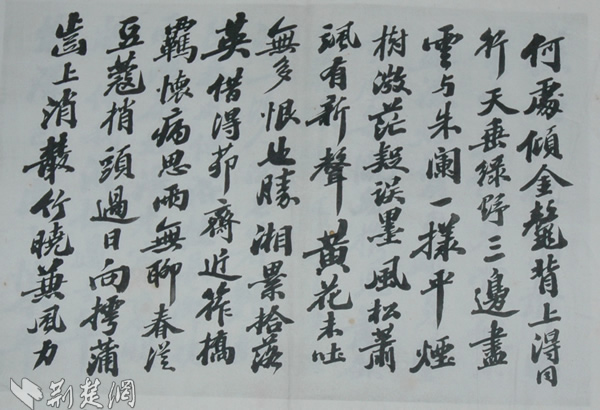 何處傾金鼇背上得同
行天垂綠野三邊盡
雲与朱闌一樣平煙
樹微茫疑誤墨風松蕭
颯有新聲黃花未吐
無多恨也勝湘累拾落
英借得茆齋近筰橋
羈懷病思兩無聊春從
豆蔻梢頭過日向樗蒲
齒上消叢竹曉兼風力
荆楚網